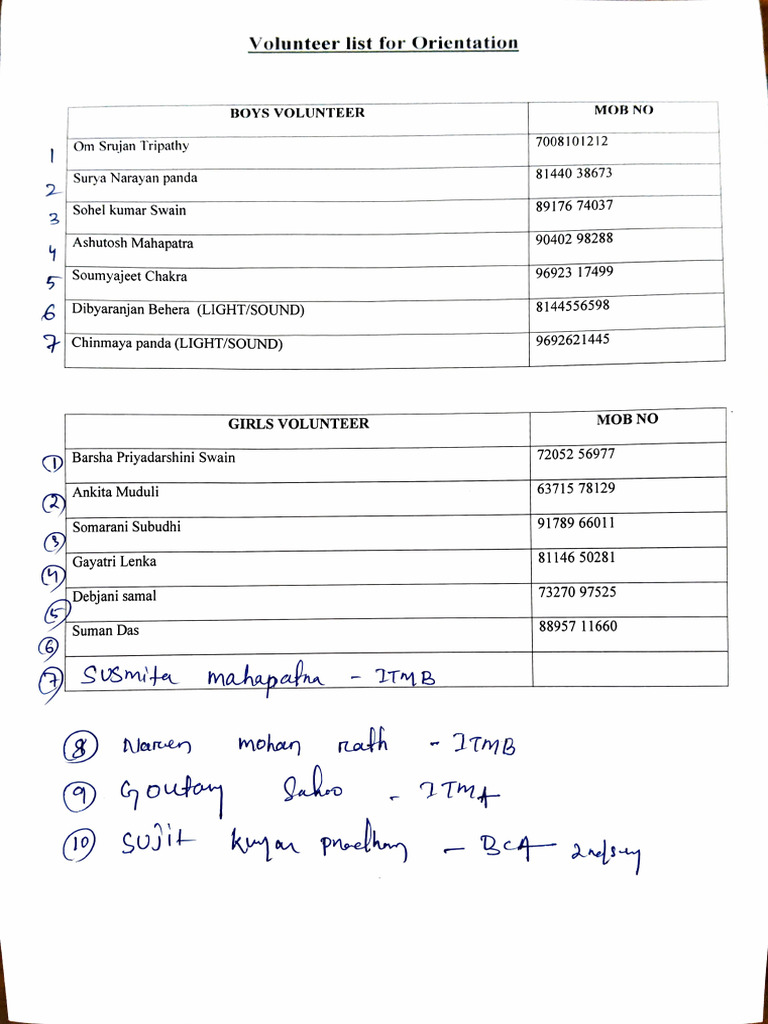 Volunteer list for Orientation
BOYS VOLUNTEER MOB NO
1 Om Srujan Tripathy 7008101212
2 Surya Narayan panda 81440 38673
3 Sohel kumar Swain 89176 74037
4 Ashutosh Mahapatra 90402 98288
5 Soumyajeet Chakra 96923 17499
6 Dibyaranjan Behera (LIGHT/SOUND) 8144556598
7 Chinmaya panda (LIGHT/SOUND) 9692621445
GIRLS VOLUNTEER MOB NO
1 Barsha Priyadarshini Swain 72052 56977
2 Ankita Muduli 63715 78129
3 Somarani Subudhi 91789 66011
4 Gayatri Lenka 81146 50281
5 Debjani samal 73270 97525
6 Suman Das 88957 11660
7 Susmita mahapatra - ITMB
8 Naren mohan rath - ITMB
9 Goutam Sahoo - ITMA
10 SUJIT kumar pradhan - BCA